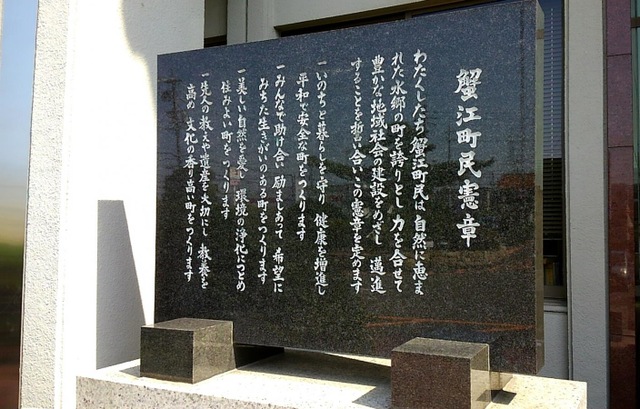 蟹江町民憲章
わたくしたち蟹江町民は 自然に恵ま
れた水郷の町を誇りとし 力を合せて
豊かな地域社会の建設をめざし 邁進
することを誓い合いこの憲章を定めます
一いのちと暮らしを守り 健康を増進し
平和で安全な町をつくります
一みんなで助け合い 励ましあって 希望に
みちた生きがいのある町をつくります
一美しい自然を愛し 環境の浄化につとめ
住みよい町をつくります
一先人の教えや遺産を大切にし 教養を
高め 文化の香り高い町をつくります